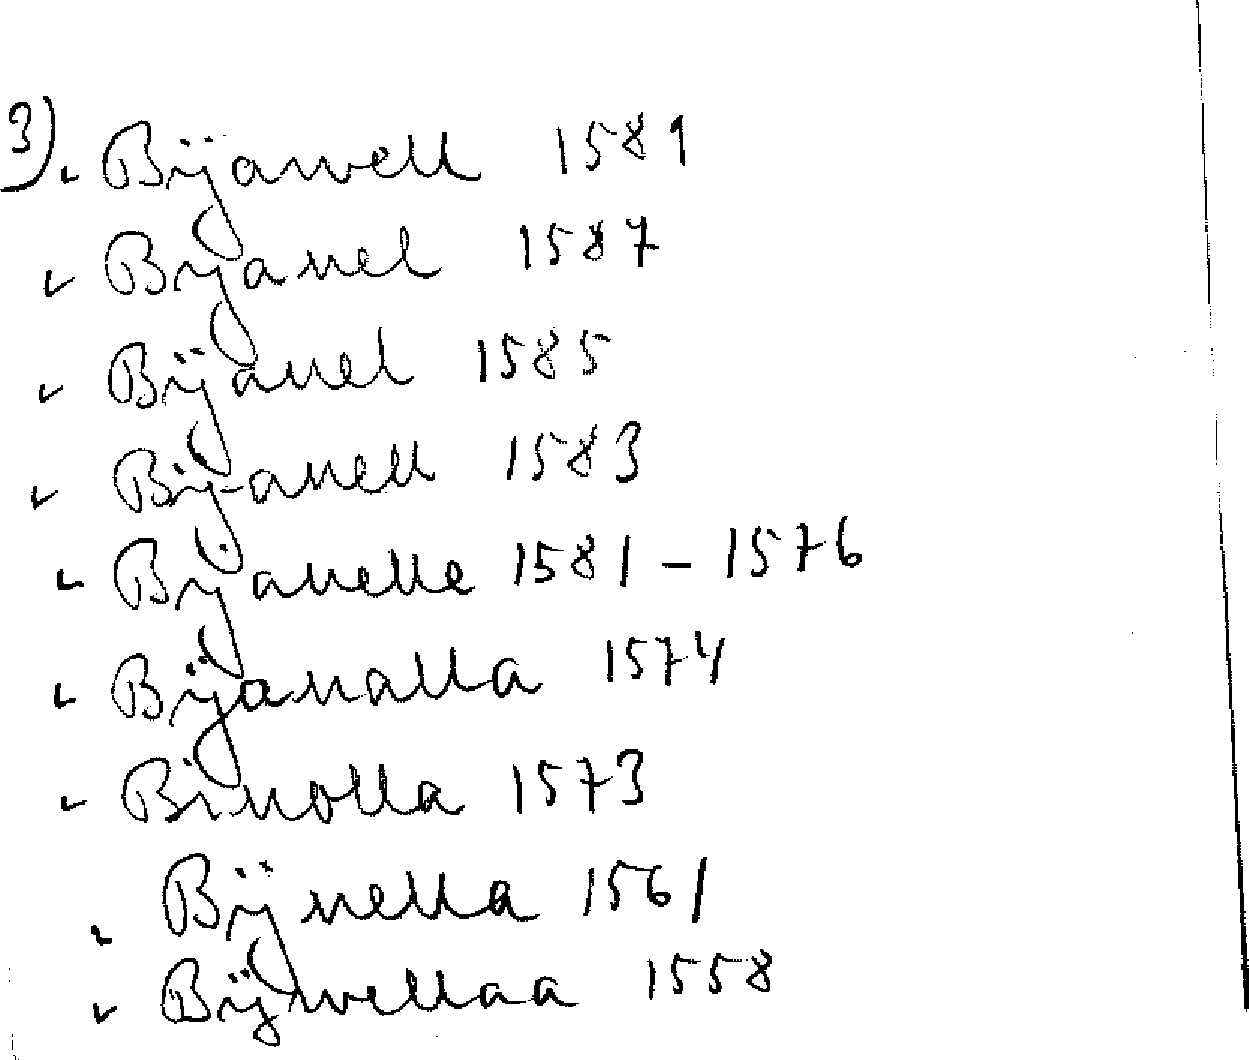 3) Bijanell 1589
Bijanel 1587
Bijanel 1585
Bijanell 1583
Bijanelle 1581 - 1576
Bijanalla 1574
Binolla 1573
Bijnella 1561
Bijnellaa 1558